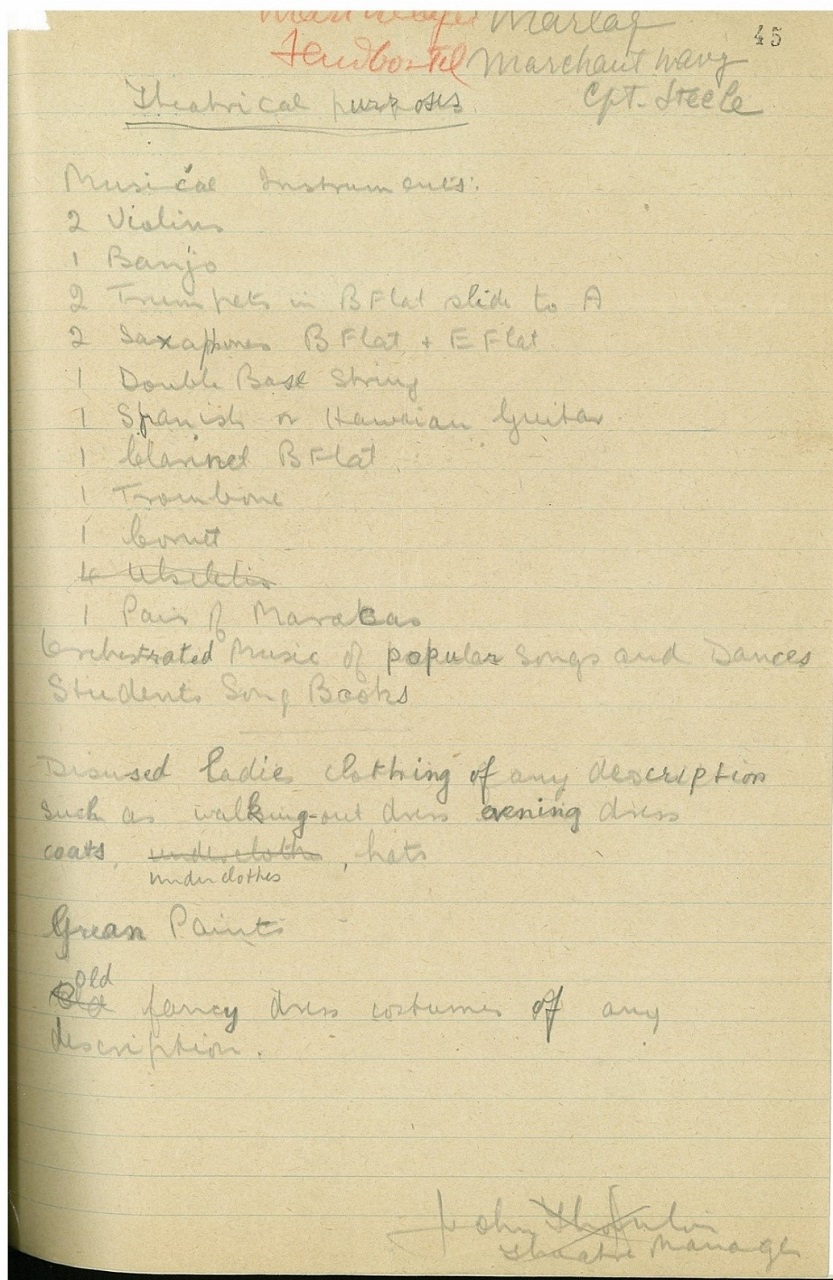 Marlag
45
Sandbostel Marchant Navy
Cpt. Steele
Theatrical purposes
Musical Instruments:
2 Violins
1 Banjo
2 Trumpets in B Flat slide to A
2 Saxaphones B Flat + E Flat
1 Double Base String
1 Spanish or Hawaian Guitar
1 Clarinet B Flat
1 Trombone
1 Cornet
4 Ukeleles
1 Pair of Maracas
Orchestrated Music of popular Songs and Dances
Students Song Books
Disused ladies clothing of any description
such as walking-out dress evening dress
coats, undercloths, hats
underclothes
Grean Paints
Old
Old fancy dress costumes of any
description.
John
Theatre Manager